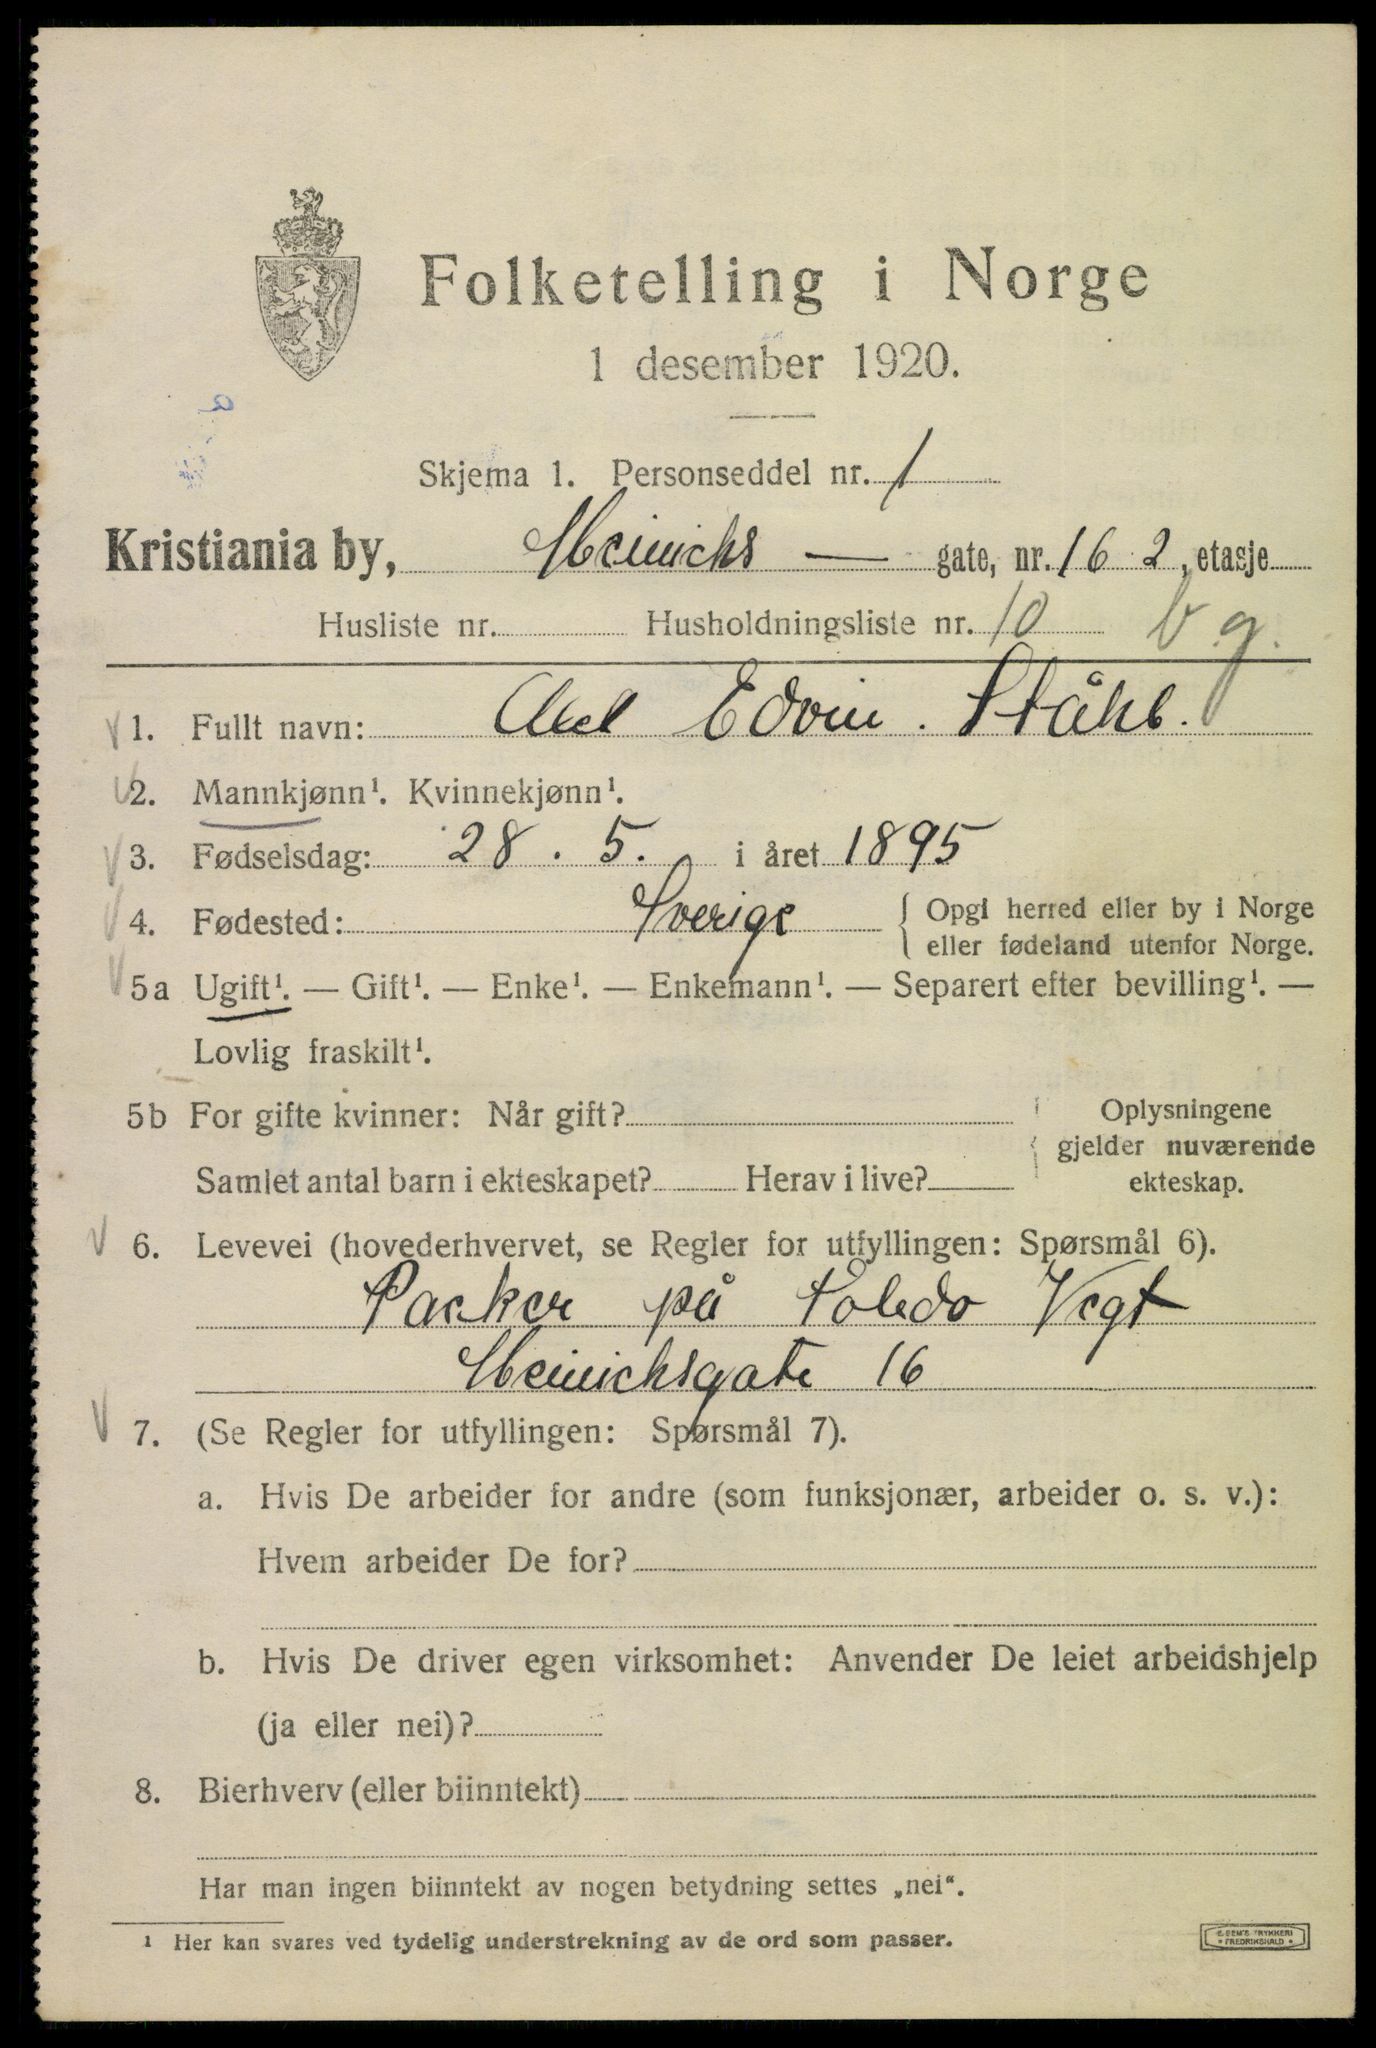 Folketelling i Norge
1 desember 1920.
Skjema 1. Personseddel nr. 1
Kristiania by, Heinrichs — gate, nr. 16 2, etasje
Husliste nr. Husholdningsliste nr. 10 b g.
1. Fullt navn: Axel Edvin. Ståhl.
2. Mannkjønn¹. Kvinnekjønn¹.
3. Fødselsdag: 28. 5. i året 1895
4. Fødested: Sverige { Opgi herred eller by i Norge
eller fødeland utenfor Norge.
5a Ugift¹. — Gift¹. — Enke¹. — Enkemann¹. — Separert efter bevilling¹. —
Lovlig fraskilt¹.
5b For gifte kvinner: Når gift? Oplysningene
gjelder nuværende
Samlet antal barn i ekteskapet? Herav i live? ekteskap.
6. Levevei (hovederhvervet, se Regler for utfyllingen: Spørsmål 6).
Packer på Toledo Vegt
Heinrichsgate 16
7. (Se Regler for utfyllingen: Spørsmål 7).
a. Hvis De arbeider for andre (som funksjonær, arbeider o. s. v.):
Hvem arbeider De for?
b. Hvis De driver egen virksomhet: Anvender De leiet arbeidshjelp
(ja eller nei)?
8. Bierhverv (eller biinntekt)
Har man ingen biinntekt av nogen betydning settes „nei“.
¹ Her kan svares ved tydelig understrekning av de ord som passer.
TRYKKERI
FREDRIKSHALD